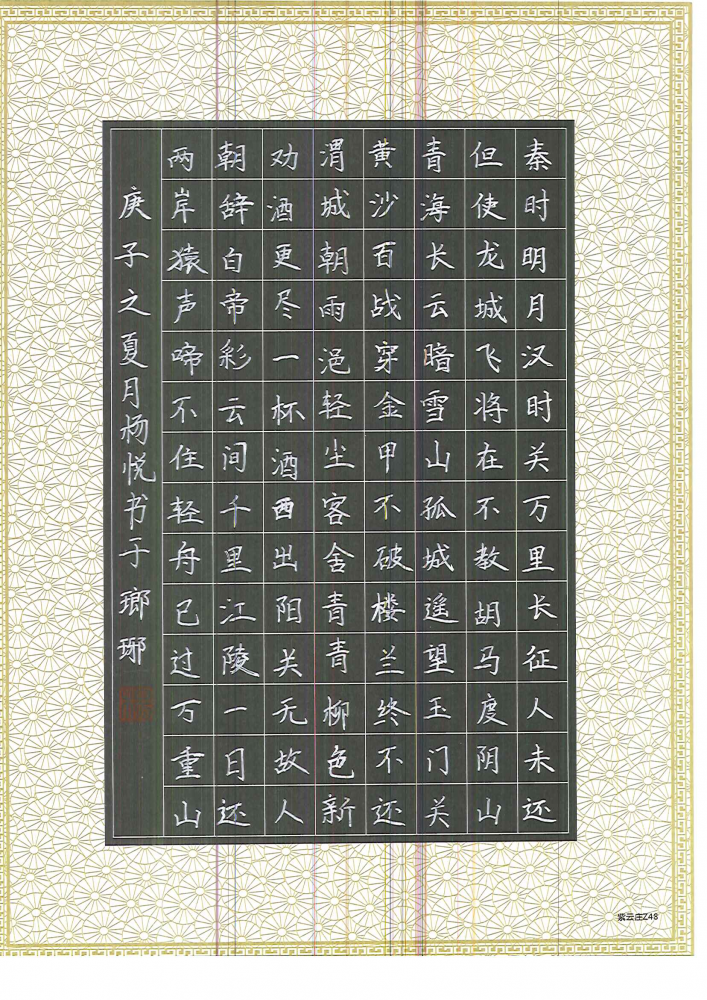 秦时明月汉时关万里长征人未还
但使龙城飞将在不教胡马度阴山
青海长云暗雪山孤城遥望玉门关
黄沙百战穿金甲不破楼兰终不还
渭城朝雨浥轻尘客舍青青柳色新
劝酒更尽一杯酒西出阳关无故人
朝辞白帝彩云间千里江陵一日还
两岸猿声啼不住轻舟已过万重山
庚子之夏月杨悦书于瑯琊
紫云庄Z48